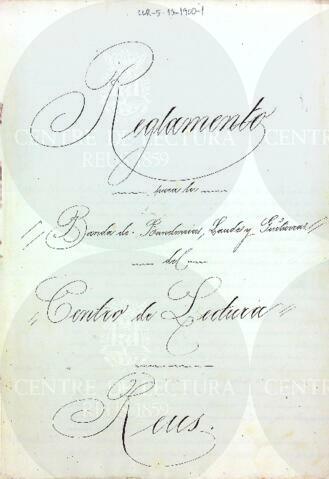 CLR-5-13-1900-1
Reglamento
para la
Banda de Bandurrias, Lauds y Guitarras
del
Centro de Lectura
Reus.
CENTRE DE LECTURA
REUS 1859